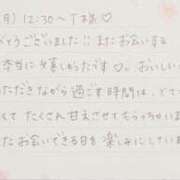 月) 12:30〜T様♡
がとうございました!! またお会いする
本当に嬉しかったです♡。おいしい
ただきながら過ごす時間は、と
して たくさん甘えさせてもらっちゃいま
たお会いできる日を楽しみにしていま